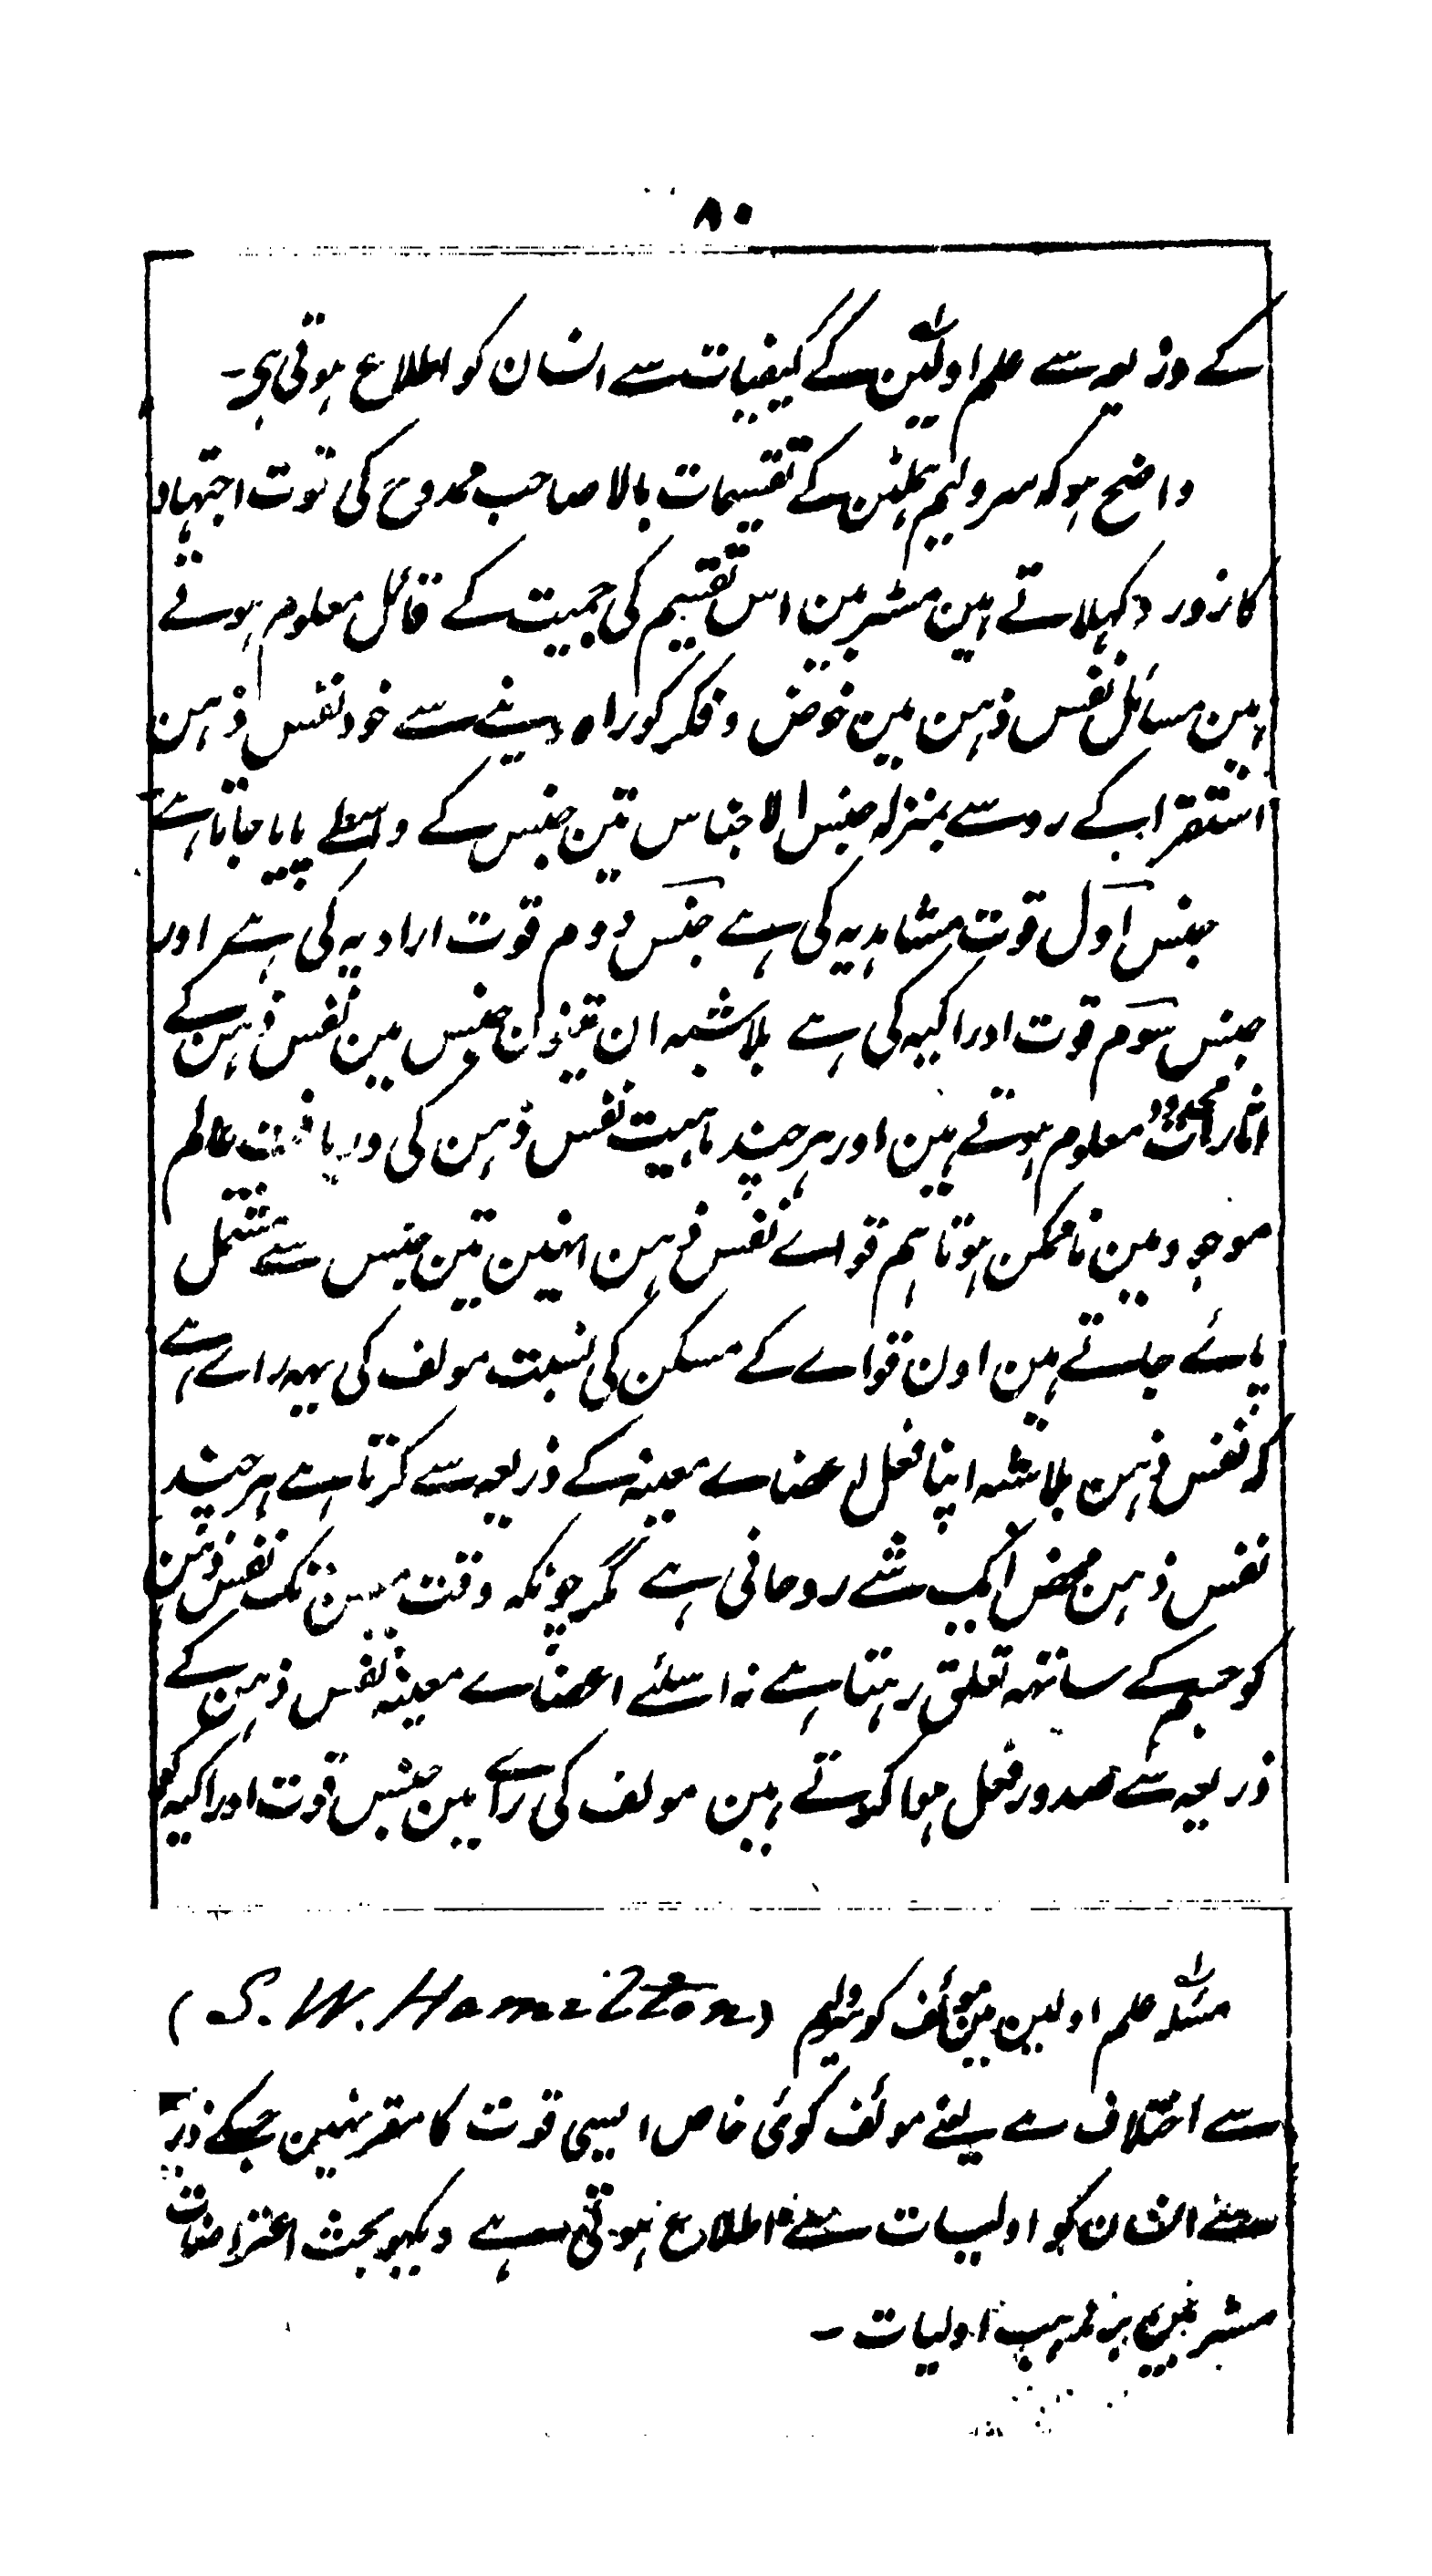 ۸۰
کے ذریعہ سے علم اولین کے کیفیات سے انسان کو اطلاع ہوتی ہی۔
واضح ہو کہ سرولیم ہملٹن کے تقسیمات بالا صاحب ممدوح کی قوت اجتہاد
کا زور دکہلاتے ہین مسٹر بین اس تقسیم کی جمعیت کے قائل معلوم ہوتے
ہین مسائل نفس ذہن مین خوض و فکر کو راہ دینے سے خود نفس ذہن
استقرا کے رو سے بمنزلہ جنس الاجناس تین جنس کے واسطے پایا جاتا ہے
جنس اول قوت مشاہدیہ کی ہے جنس دوم قوت ارادیہ کی ہے اور
جنس سوم قوت ادراکیہ کی ہے بلاشبہ ان تینون جنس مین نفس ذہن کے
اثارات محدود معلوم ہوتے ہین اور ہر چند ماہیت نفس ذہن کی دریافت عالم
موجود مین ناممکن ہو تاہم قواے نفس ذہن انہین تین جنس سے مشتمل
پائے جاتے ہین اون قواے کے مسکن کی نسبت مولف کی یہہ راے ہے
کہ نفس ذہن بلاشبہ اپنا فعل اعضاے معینہ کے ذریعہ سے کرتا ہے ہر چند
نفس ذہن محض ایک شے روحانی ہے مگر چونکہ وقت معین تک نفس ذہن
کو جسم کے ساتہہ تعلق رہتا ہے اسلئے اعضاے معینہ نفس ذہن کے
ذریعہ سے صدور فعل ہوا کرتے ہین مولف کی راے مین جنس قوت ادراکیہ کو
مسئلہ علم اولین مین مولف کو سرولیم (S. W. Hamilton)
سے اختلاف ہے یعنے مولف کوئی خاص ایسی قوت کا مقر نہین جسکے ذریعہ
سے انسان کو اولیات سے اطلاع ہوتی ہے دیکہو بحث اعتراضات
مسٹر بین بر مذہب اولیات۔